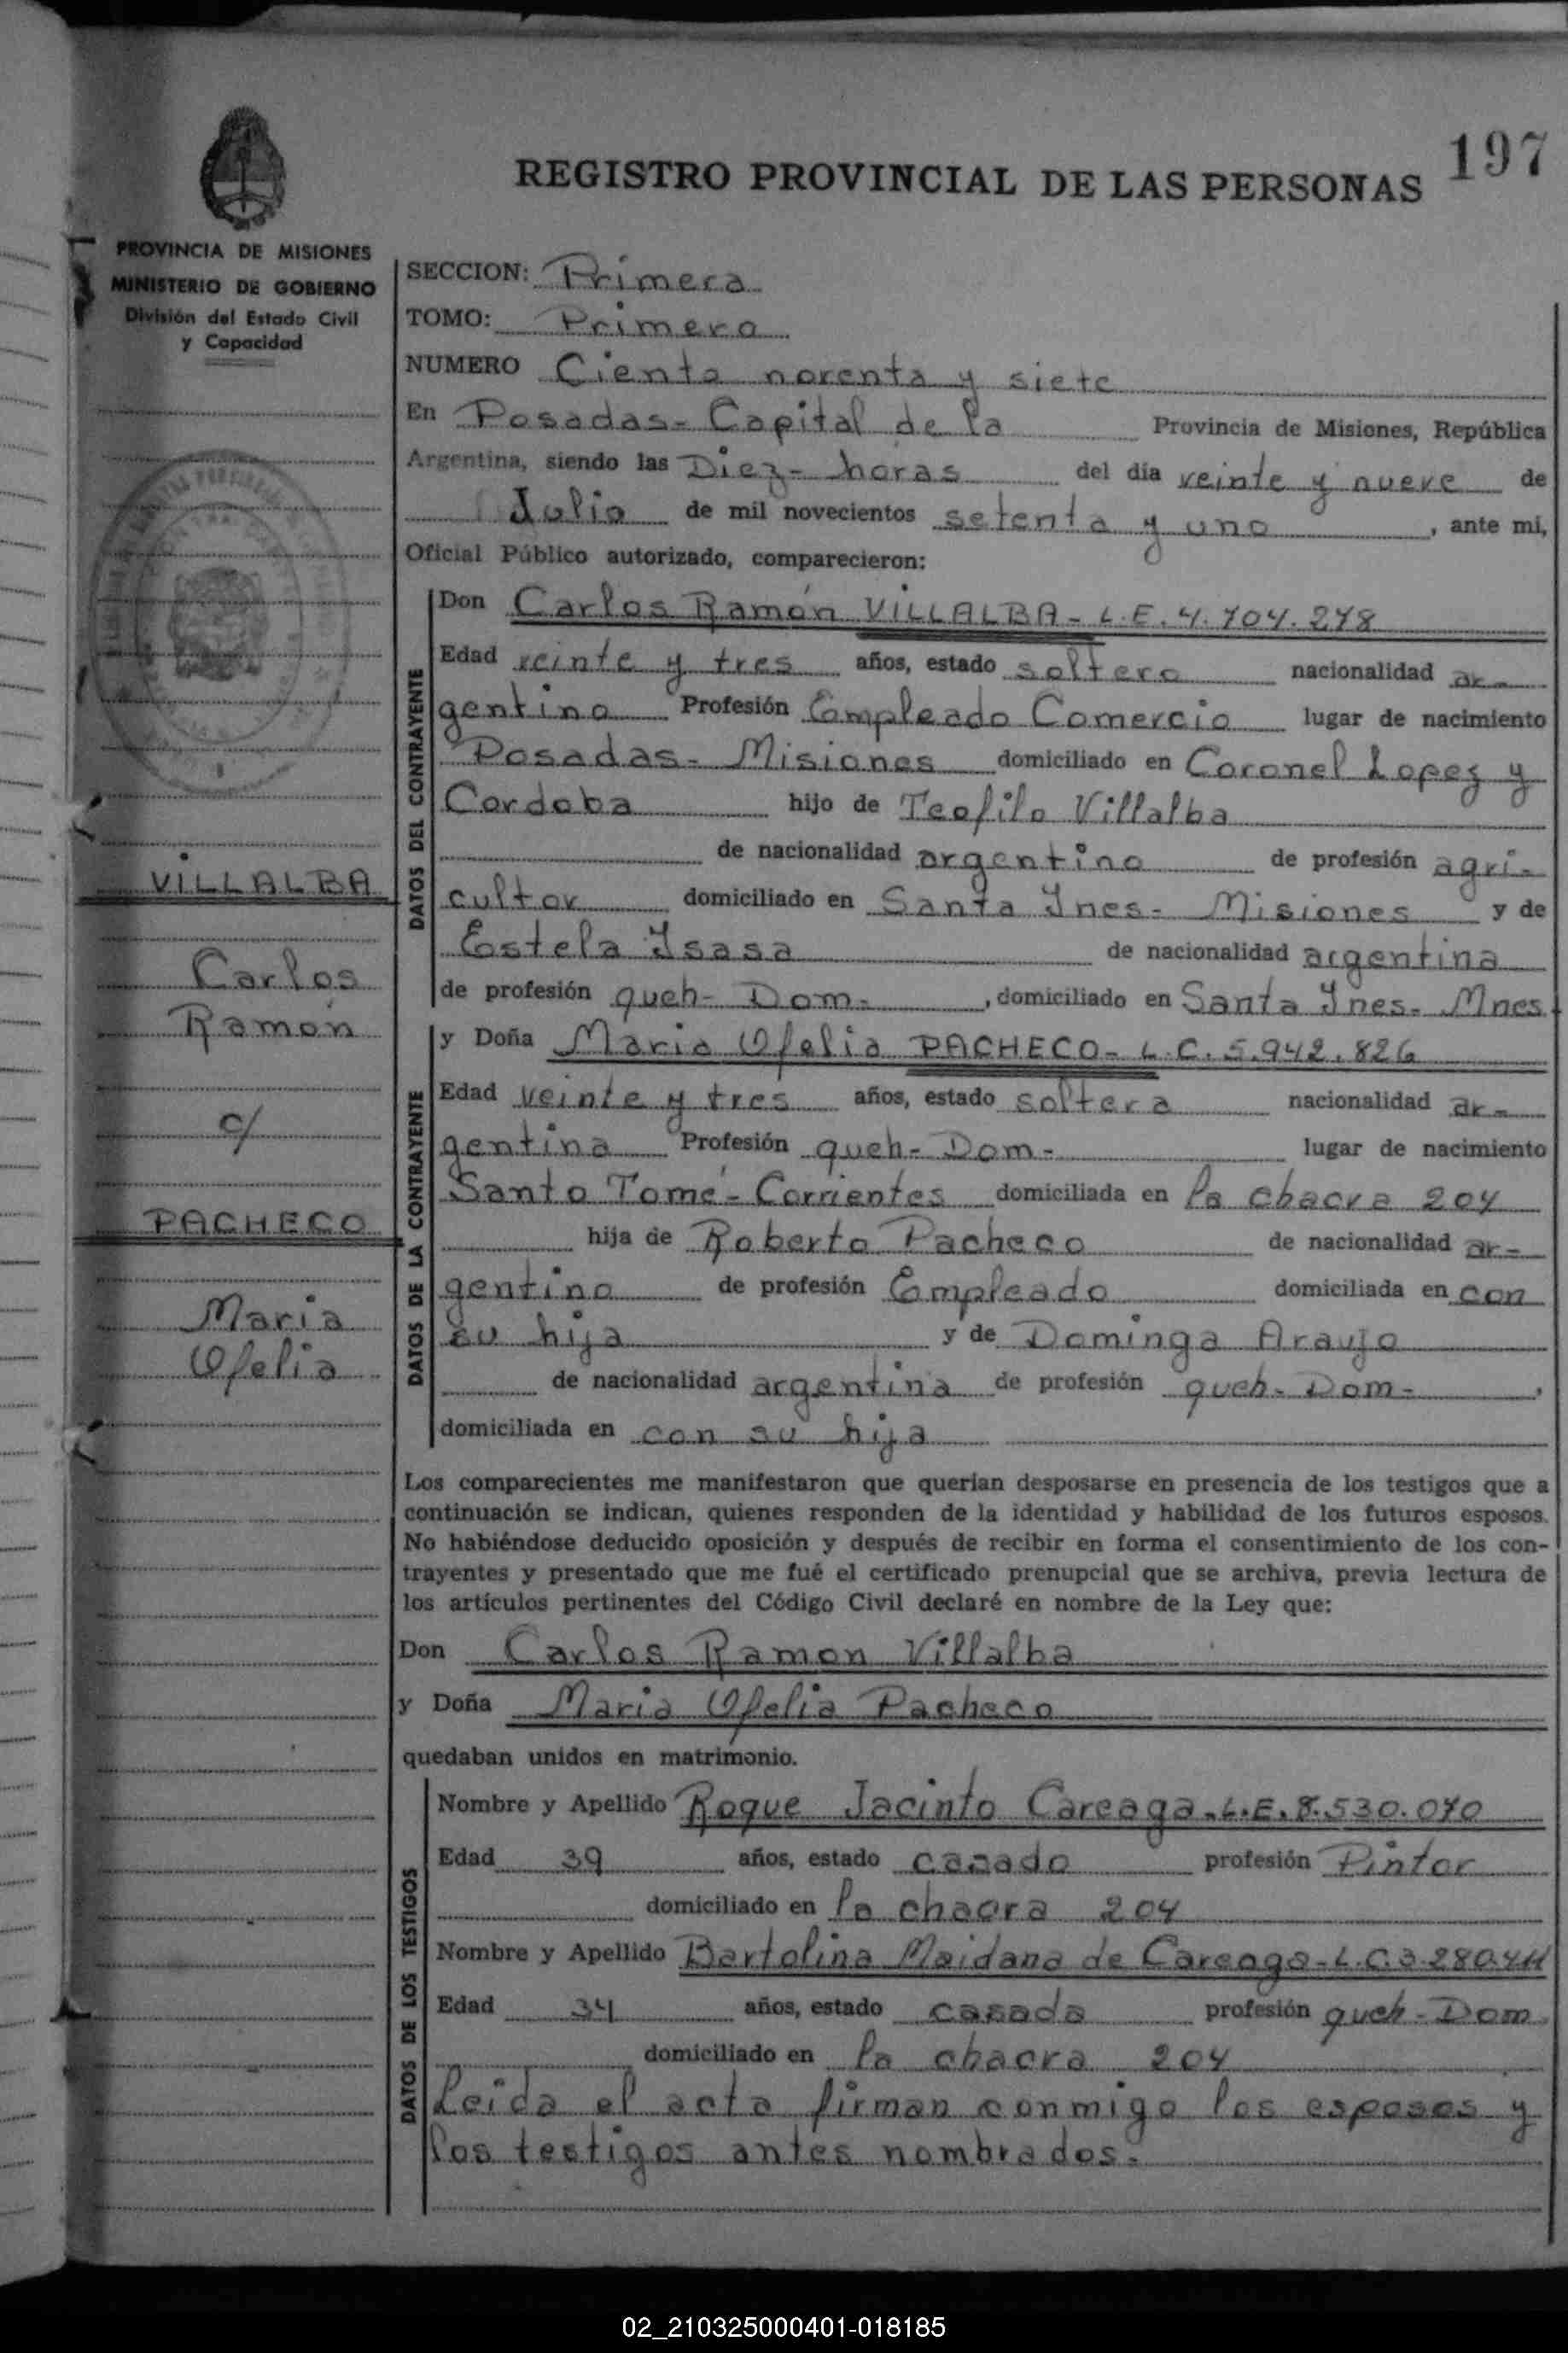 197
REGISTRO PROVINCIAL DE LAS PERSONAS
PROVINCIA DE MISIONES
MINISTERIO DE GOBIERNO
División del Estado Civil
y Capacidad
VILLALBA
Carlos
Ramón
c/
PACHECO
Maria
Ofelia
SECCION: Primera
TOMO: Primero
NUMERO Ciento noventa y siete
En Posadas - Capital de la Provincia de Misiones, República
Argentina, siendo las Diez - horas del día veinte y nueve de
Julio de mil novecientos setenta y uno, ante mi,
Oficial Público autorizado, comparecieron:
DATOS DEL CONTRAYENTE
Don Carlos Ramón VILLALBA - L.E. 4.704.278
Edad veinte y tres años, estado soltero nacionalidad ar-
gentino Profesión Empleado Comercio lugar de nacimiento
Posadas - Misiones domiciliado en Coronel Lopez y
Cordoba hijo de Teofilo Villalba
de nacionalidad argentino de profesión agri-
cultor domiciliado en Santa Ines - Misiones y de
Estela Isasa de nacionalidad argentina
de profesión queh- Dom-, domiciliado en Santa Ines - Mnes.
DATOS DE LA CONTRAYENTE
y Doña Maria Ofelia PACHECO - L.C. 5.942.826
Edad veinte y tres años, estado soltera nacionalidad ar-
gentina Profesión queh- Dom- lugar de nacimiento
Santo Tomé - Corrientes domiciliada en la chacra 204
hija de Roberto Pacheco de nacionalidad ar-
gentino de profesión Empleado domiciliada en con
su hija y de Dominga Araujo
de nacionalidad argentina de profesión queh- Dom-,
domiciliada en con su hija
Los comparecientes me manifestaron que querían desposarse en presencia de los testigos que a
continuación se indican, quienes responden de la identidad y habilidad de los futuros esposos.
No habiéndose deducido oposición y después de recibir en forma el consentimiento de los con-
trayentes y presentado que me fué el certificado prenupcial que se archiva, previa lectura de
los artículos pertinentes del Código Civil declaré en nombre de la Ley que:
Don Carlos Ramon Villalba
y Doña Maria Ofelia Pacheco
quedaban unidos en matrimonio.
DATOS DE LOS TESTIGOS
Nombre y Apellido Roque Jacinto Careaga - L.E. 8.530.070
Edad 39 años, estado casado profesión Pintor
domiciliado en la chacra 204
Nombre y Apellido Bartolina Maidana de Careaga - L.C.
Edad 34 años, estado casada profesión queh - Dom
domiciliado en la chacra 204
Leida el acta firman conmigo los esposos y
los testigos antes nombrados.
02_210325000401-018185